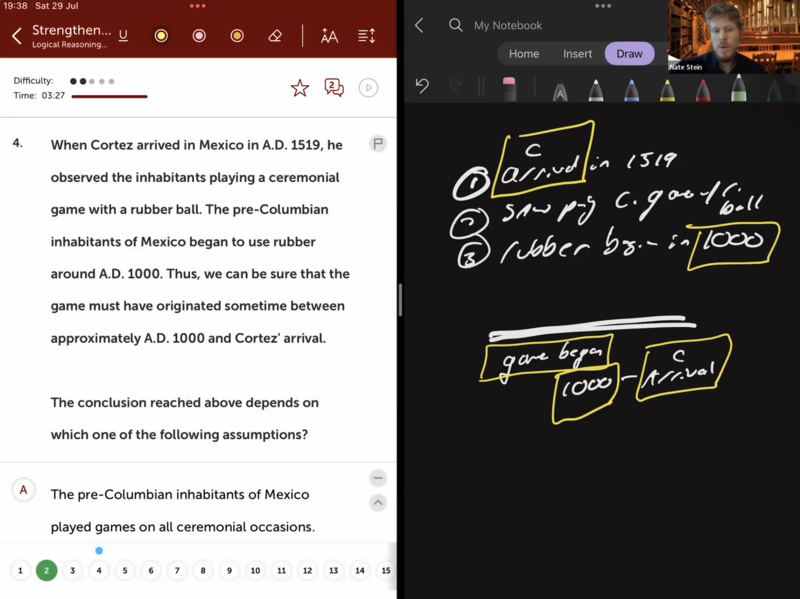 19:38 Sat 29 Jul
Strengthen...
Logical Reasoning...
U
AA
Difficulty:
Time: 03:27
2
4.
When Cortez arrived in Mexico in A.D. 1519, he
observed the inhabitants playing a ceremonial
game with a rubber ball. The pre-Columbian
inhabitants of Mexico began to use rubber
around A.D. 1000. Thus, we can be sure that the
game must have originated sometime between
approximately A.D. 1000 and Cortez' arrival.
The conclusion reached above depends on
which one of the following assumptions?
A
The pre-Columbian inhabitants of Mexico
played games on all ceremonial occasions.
1 2 3 4 5 6 7 8 9 10 11 12 13 14 15
My Notebook
Home Insert Draw
Nate Stein
A
C
① arrived in 1519
② saw C. game
ball
③ rubber in 1000
game began
1000 - C
Arrival